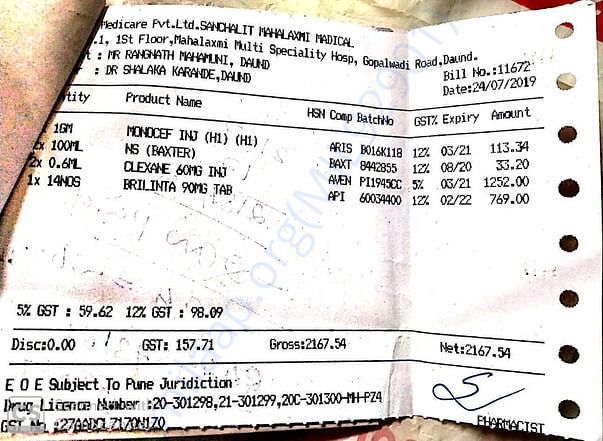 Medicare Pvt.Ltd.SANCHALIT MAHALAXMI MADICAL
.1, 1St Floor,Mahalaxmi Multi Speciality Hosp, Gopalwadi Road,Daund.
: MR RANGNATH MAHAMUNI, DAUND
Bill No.:11672
: DR SHALAKA KARANDE,DAUND
Date:24/07/2019
tity Product Name HSN Comp BatchNo GST% Expiry Amount
1GM MONOCEF INJ (H1) (H1) ARIS B016K118 12% 03/21 113.34
x 100ML NS (BAXTER) BAXT 8442855 12% 08/20 33.20
2x 0.6ML CLEXANE 60MG INJ AVEN PI1945CC 5% 03/21 1252.00
1x 14NOS BRILINTA 90MG TAB API 60034400 12% 02/22 769.00
5% GST : 59.62 12% GST : 98.09
Disc:0.00 GST: 157.71 Gross:2167.54 Net:2167.54
E O E Subject To Pune Juridiction
Drug Licence Number :20-301298,21-301299,20C-301300-MH-PZ4
GST No
PHARMACIST